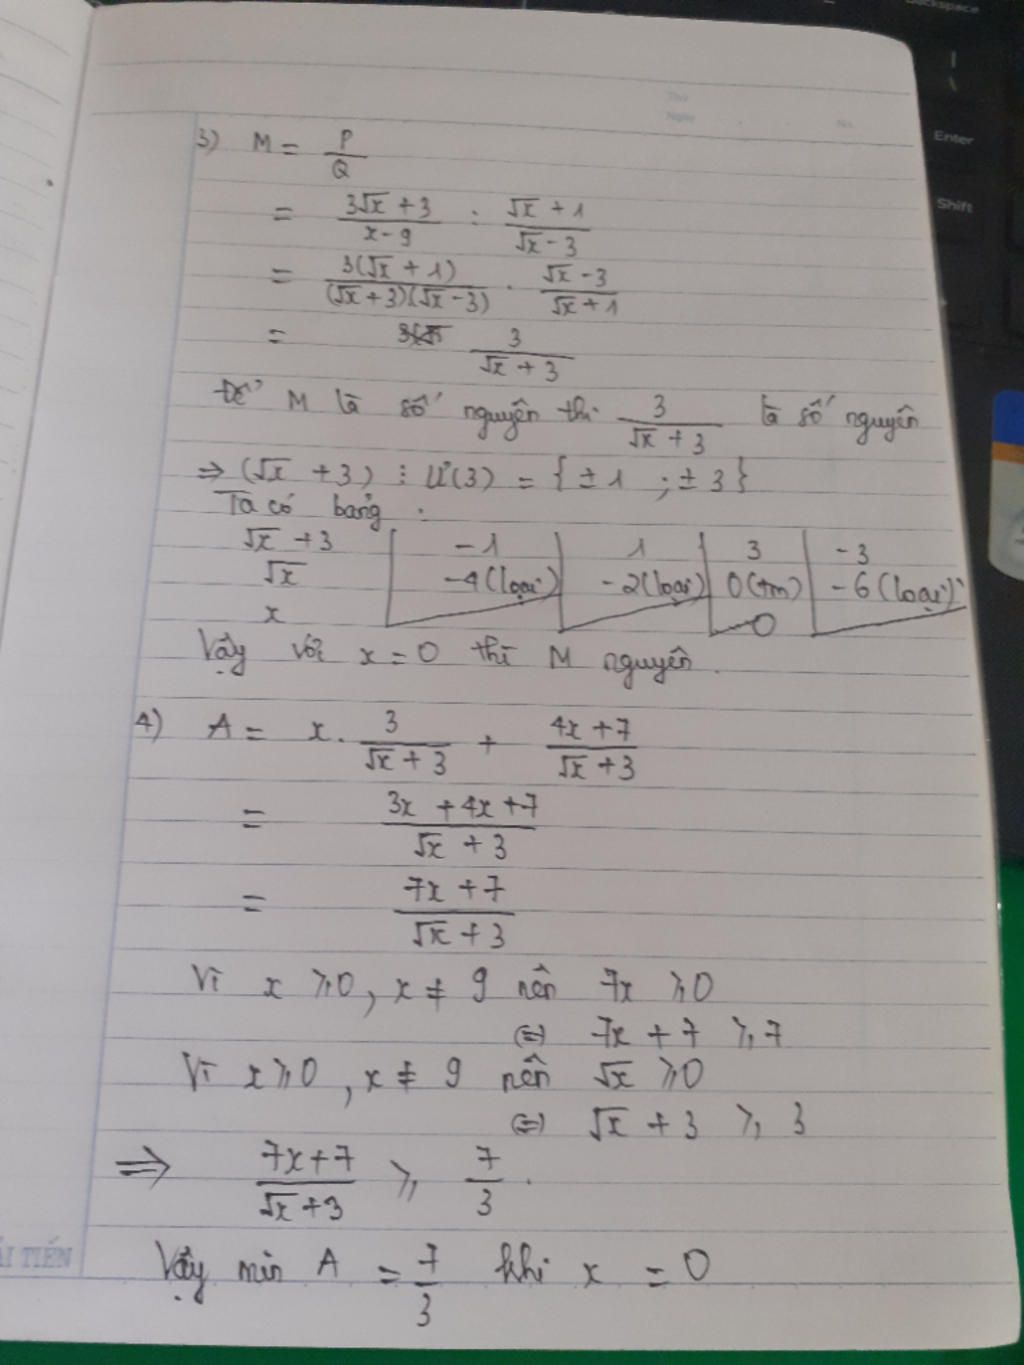 Backspace
Enter
Shift
Thứ
Ngày
No.
3) M = P/Q
= (3√x + 3)/(x - 9) : (√x + 1)/(√x - 3)
= 3(√x + 1)/((√x + 3)(√x - 3)) . (√x - 3)/(√x + 1)
= 3/(√x + 3)
Để M là số nguyên thì 3/(√x + 3) là số nguyên
⇒ (√x + 3) ⋮ Ư(3) = {±1 ; ±3}
Ta có bảng :
√x + 3 | -1 | 1 | 3 | -3
√x | -4 (loại) | -2 (loại) | 0 (tm) | -6 (loại)
x | | | 0 |
Vậy với x = 0 thì M nguyên.
4) A = x. 3/(√x + 3) + (4x + 7)/(√x + 3)
= (3x + 4x + 7)/(√x + 3)
= (7x + 7)/(√x + 3)
Vì x ⩾ 0, x ≠ 9 nên 7x ⩾ 0
(=) 7x + 7 ⩾ 7
Vì x ⩾ 0, x ≠ 9 nên √x ⩾ 0
(=) √x + 3 ⩾ 3
⇒ (7x + 7)/(√x + 3) ⩾ 7/3.
Vậy min A = 7/3 khi x = 0
ẢI TIẾN